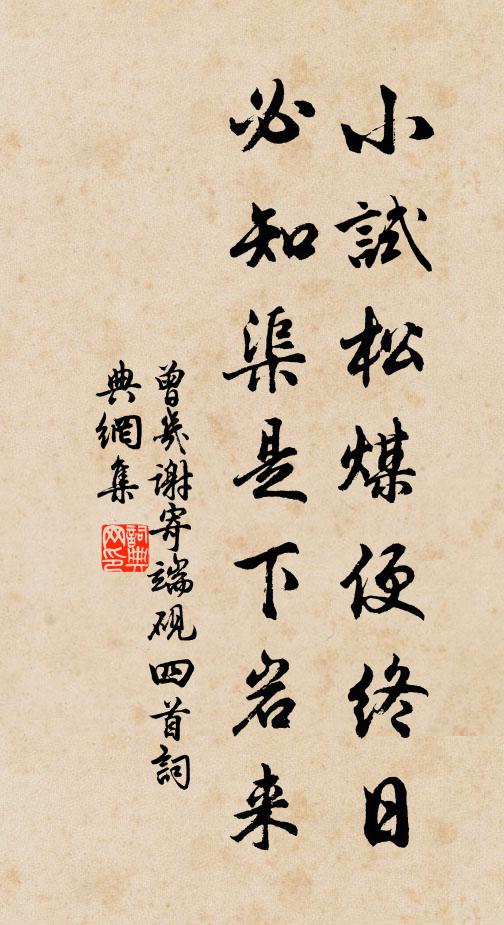 小試松煤便終日
必知渠是下岩来
曾幾謝寄端硯四首詞
典網集
詞典
网印